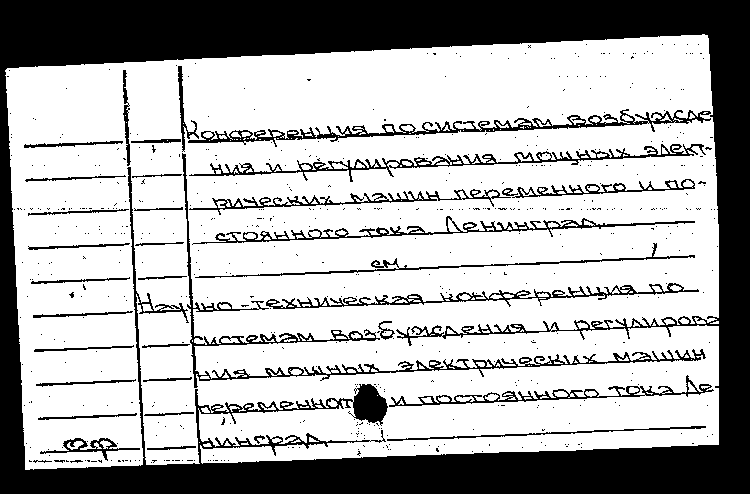 Конференция по системам возбужде-
ния и регулирования мощных элект-
рических машин переменного и по-
стоянного тока. Ленинград.
см.
Научно-техническая конференция по
системам возбуждения и регулирова
ния мощных электрических машин
переменного и постоянного тока Ле-
нинград.